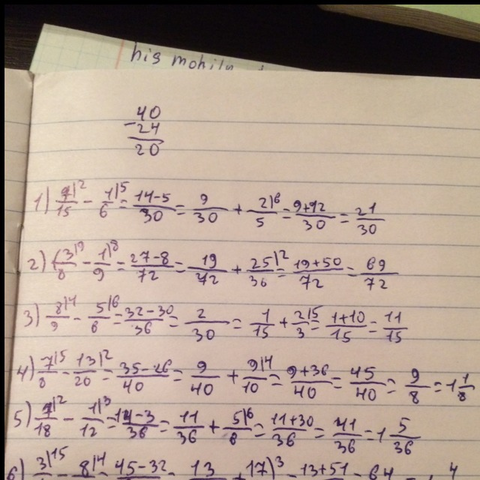 his mobile
40
-24
20
1) 7|2/15 - 1|5/6 = 14-5/30 = 9/30 + 2|6/5 = 9+12/30 = 21/30
2) 3|9/8 - 1|8/9 = 27-8/72 = 19/72 + 25|2/36 = 19+50/72 = 69/72
3) 8|4/9 - 5|6/6 = 32-30/36 = 2/30 = 1/15 + 2|5/3 = 1+10/15 = 11/15
4) 7|5/8 - 13|2/20 = 35-26/40 = 9/40 + 9|4/10 = 9+36/40 = 45/40 = 9/8 = 1 1/8
5) 7|2/18 - 1|3/12 = 14-3/36 = 11/36 + 5|6/6 = 11+30/36 = 41/36 = 1 5/36
6) 3|15 - 8|4 = 45-32 = 13 + 17|3 = 13+51 = 64 = 4